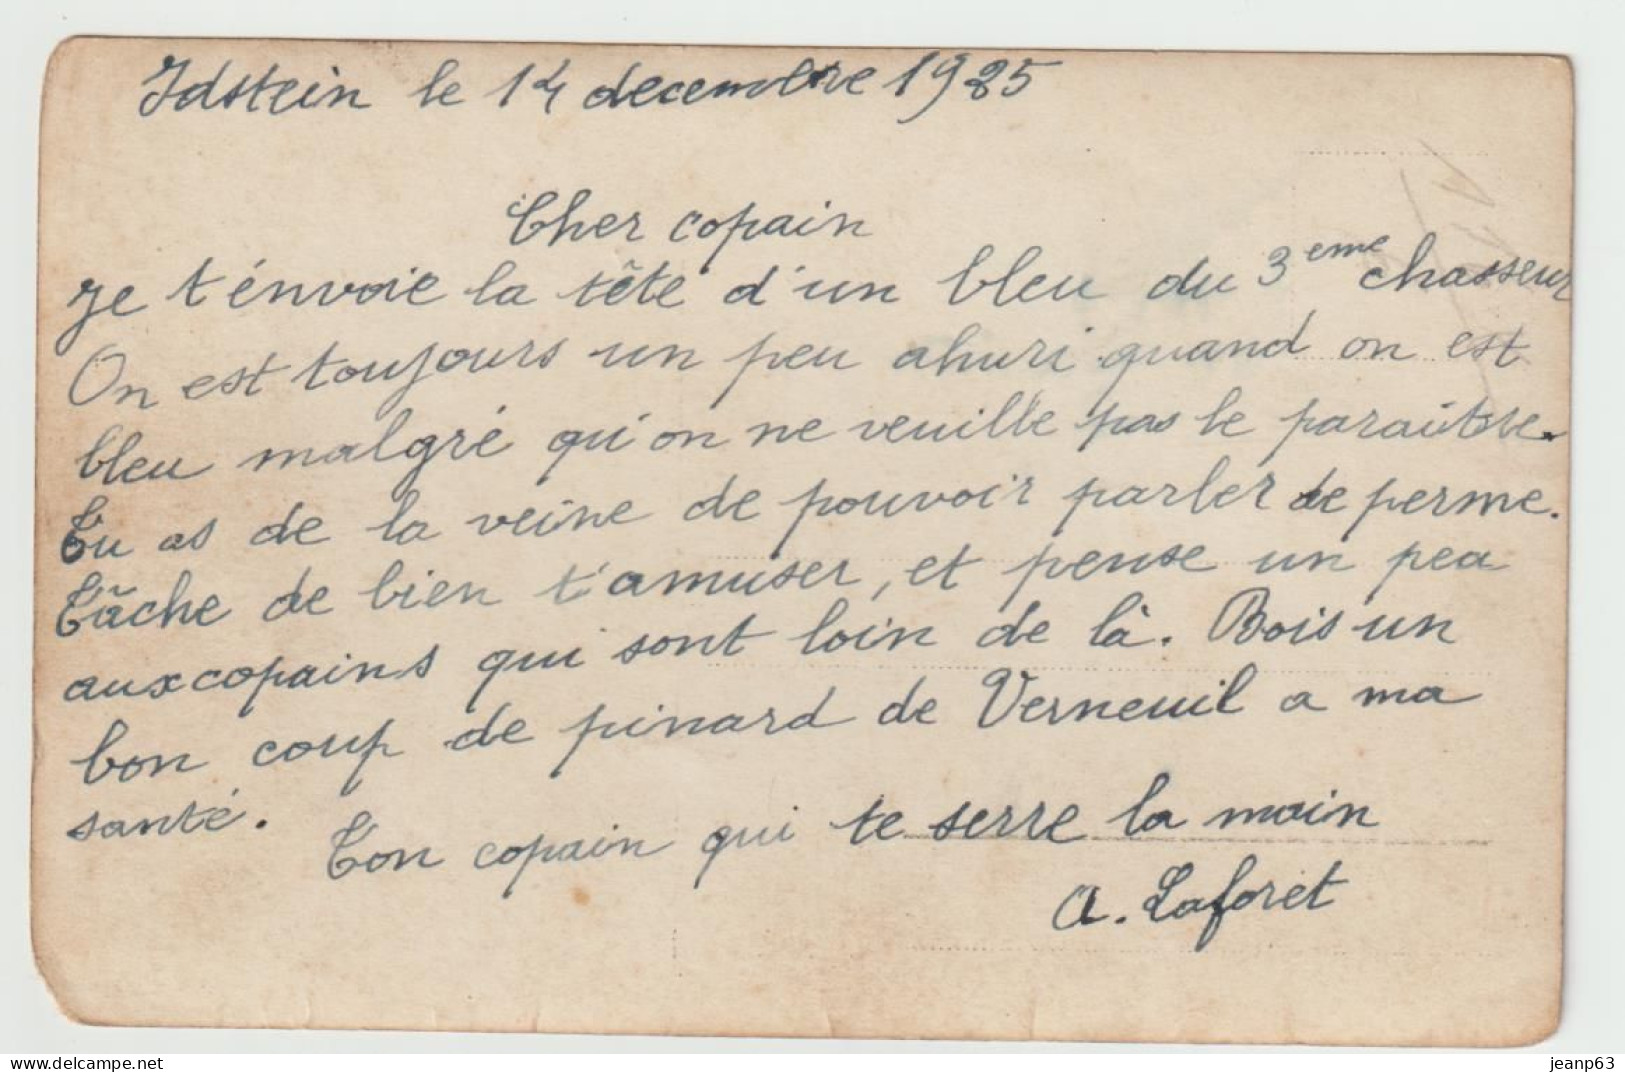 Idstein le 14 decembre 1925
Cher copain
Je t'énvoie la tête d'un bleu du 3eme chasseur
On est toujours un peu ahuri quand on est
bleu malgré qu'on ne veuille pas le paraitre.
Tu as de la veine de pouvoir parler de perme.
Tâche de bien t'amuser, et pense un peu
aux copains qui sont loin de là. Bois un
bon coup de pinard de Verneuil a ma
santé.
Ton copain qui te serre la main
A. Laforêt
delcampe.net
jeanp63